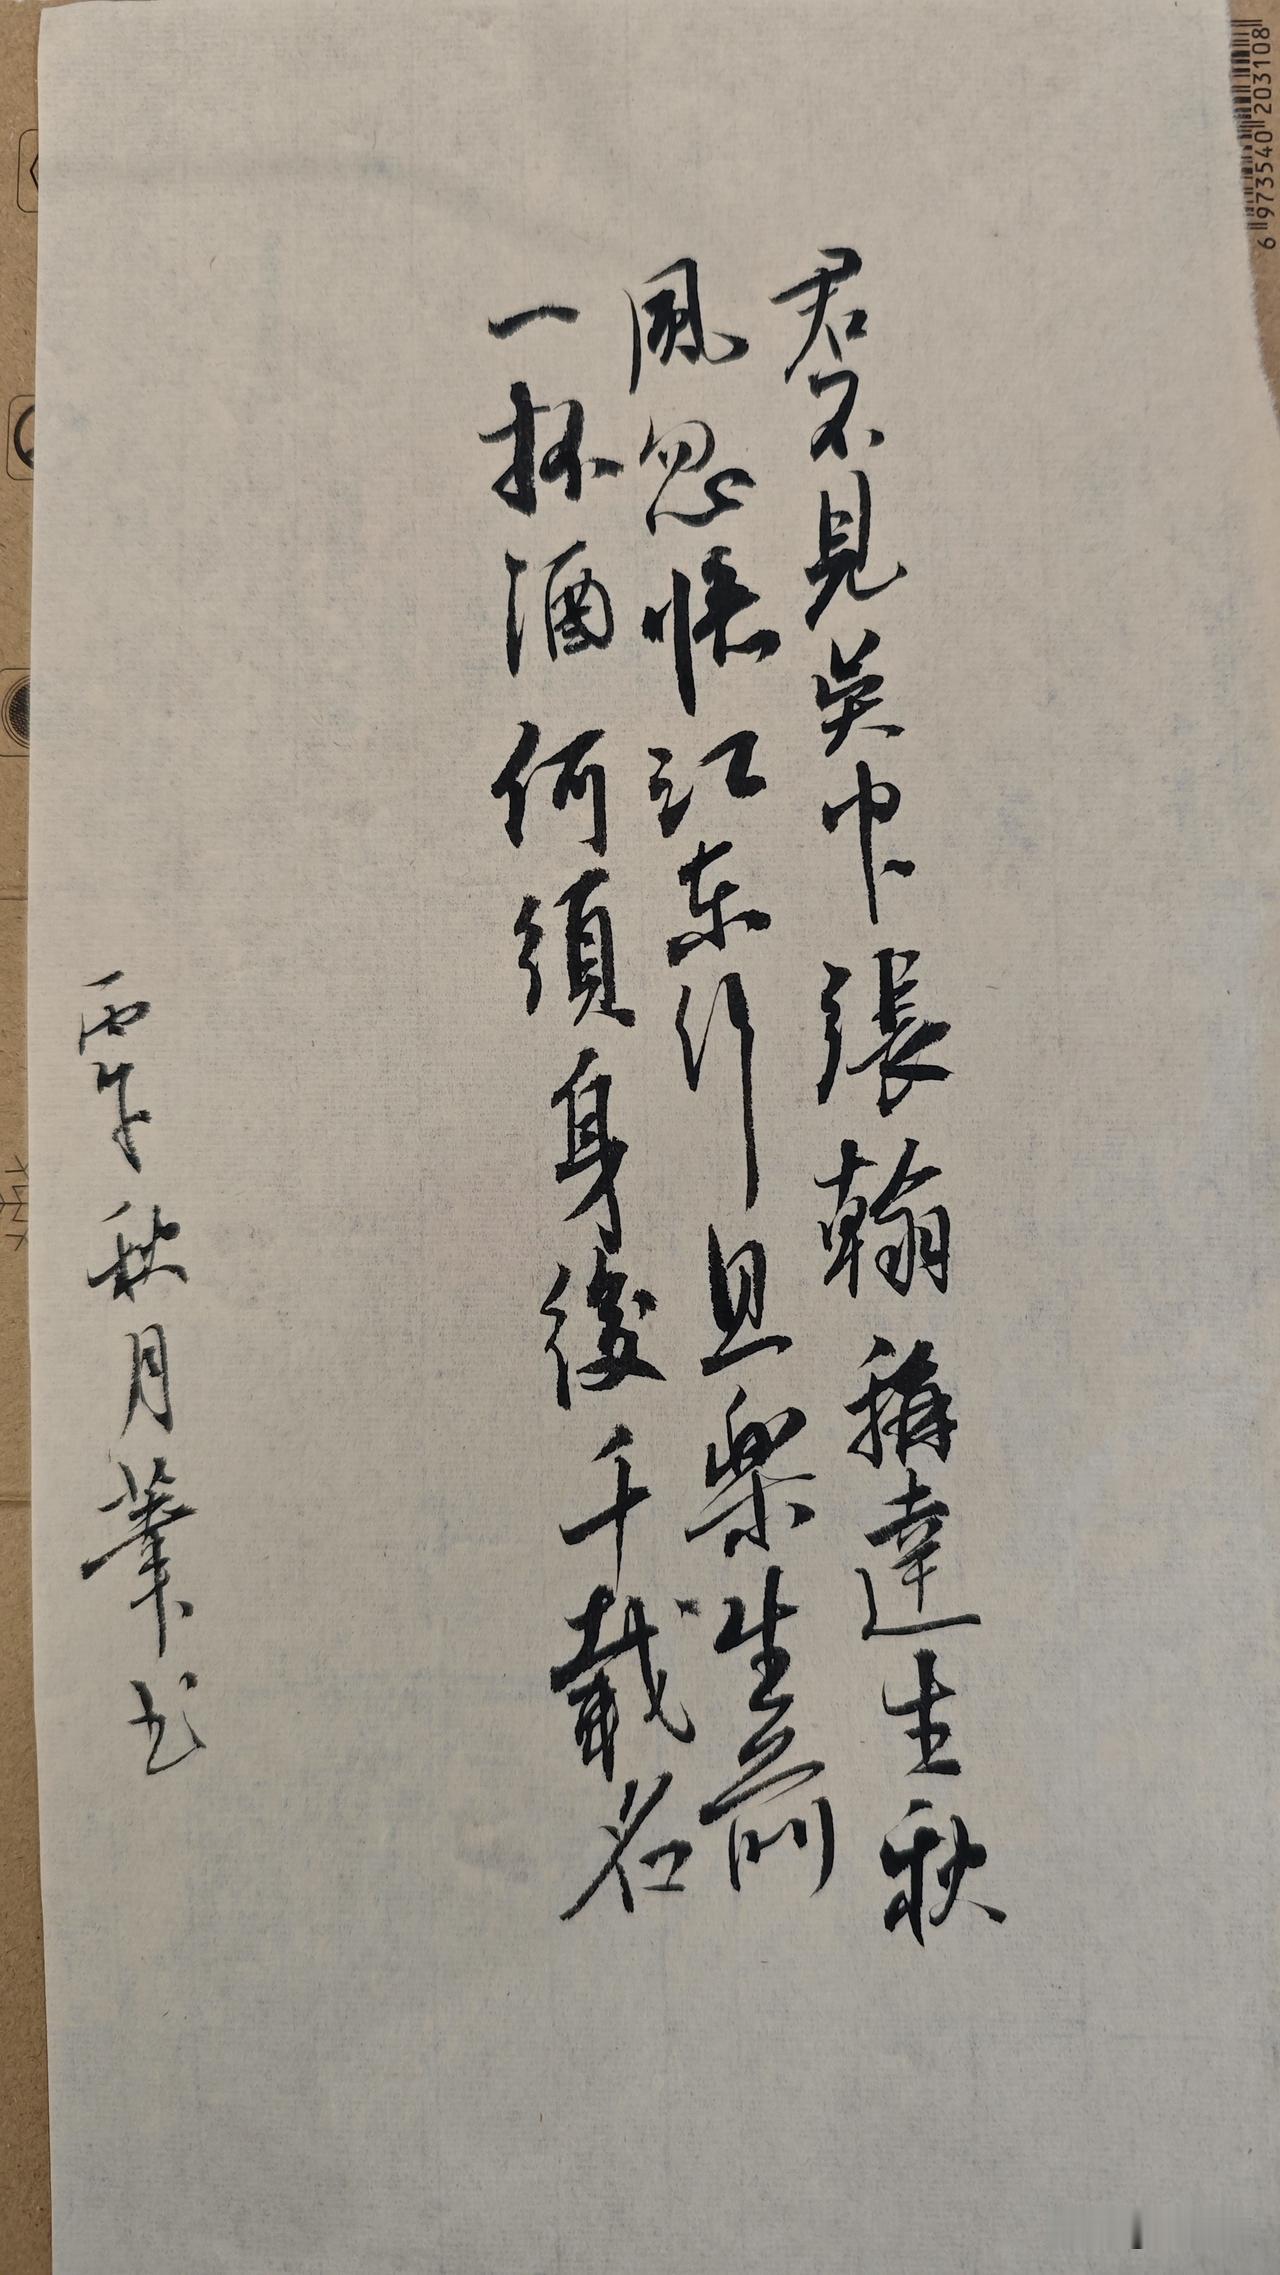 君不見吴中張翰稱達生秋
風忽憶江东行且樂生前
一杯酒何須身後千載名
丙午秋月书
6 973540 203108